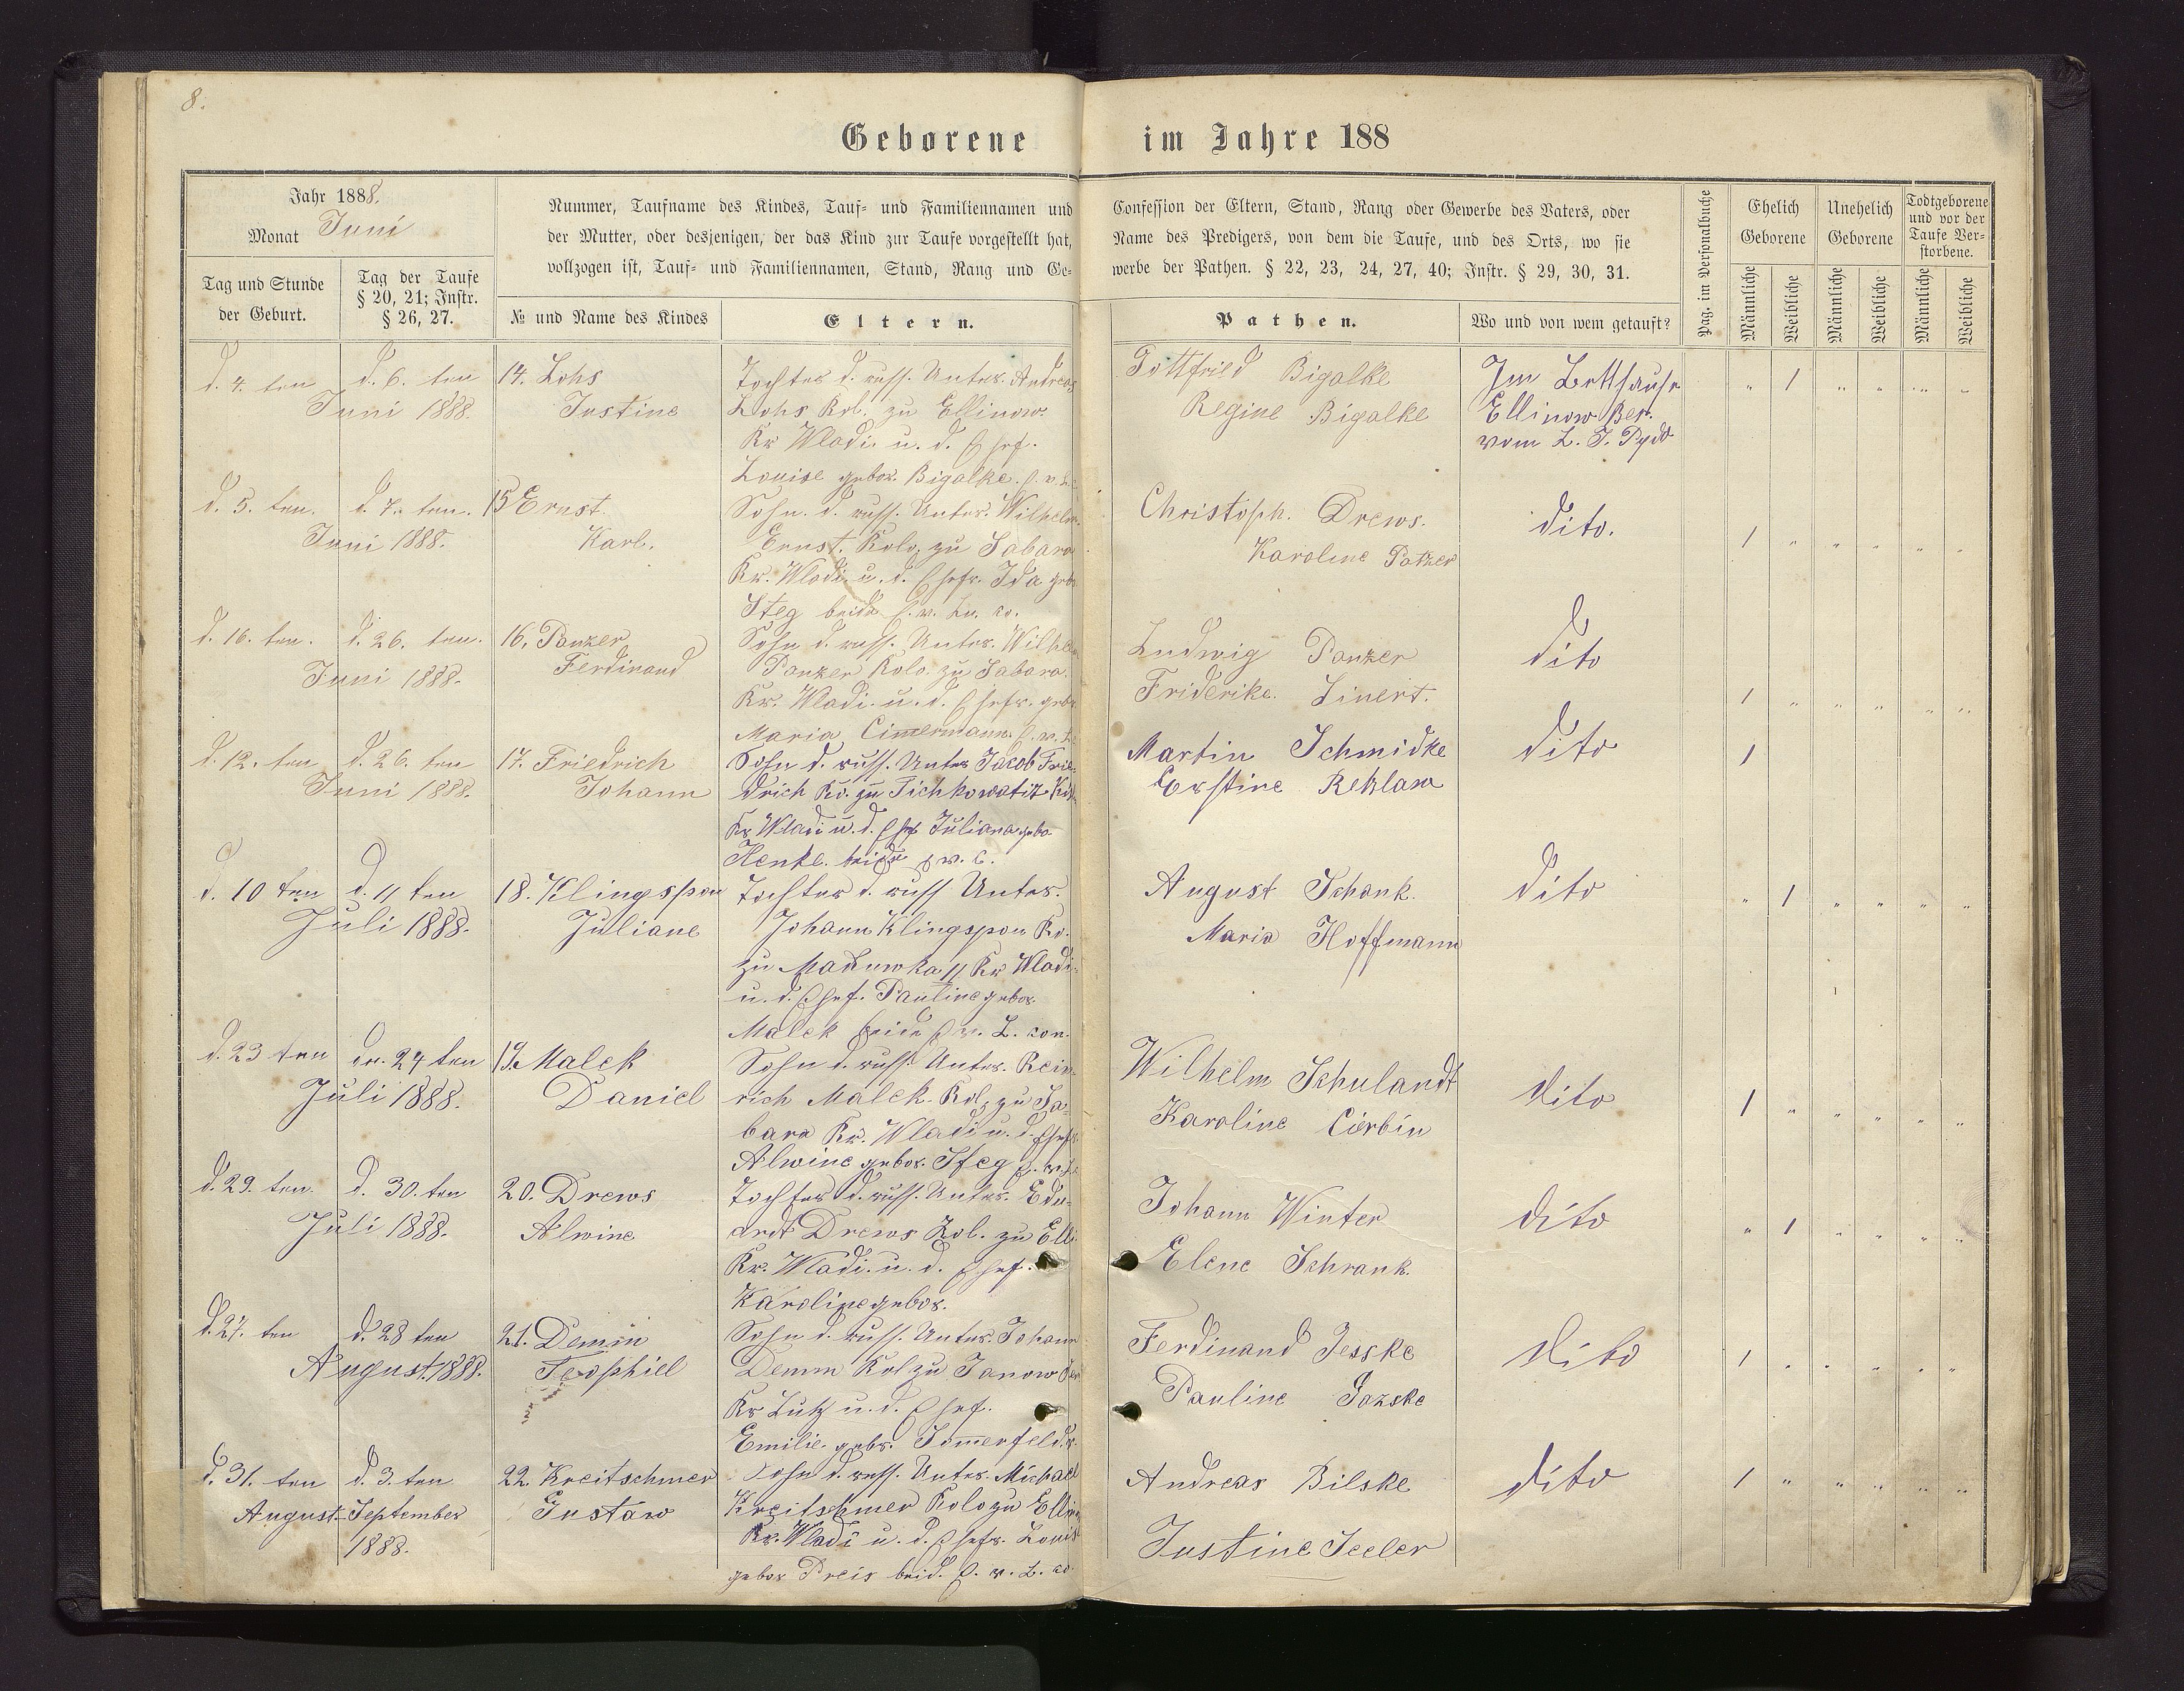 8.
Geborene im Jahre 188
Jahr 1888.
Monat Juni
Tag und Stunde
der Geburt.
Tag der Taufe
§ 20, 21; Instr.
§ 26, 27.
Nummer, Taufname des Kindes, Tauf- und Familiennamen und
der Mutter, oder desjenigen, der das Kind zur Taufe vorgestellt hat,
vollzogen ist, Tauf- und Familiennamen, Stand, Rang und Ge-
№ und Name des Kindes
Eltern.
Confession der Eltern, Stand, Rang oder Gewerbe des Vaters, oder
Name des Predigers, von dem die Taufe, und des Orts, wo sie
werbe der Pathen. § 22, 23, 24, 27, 40; Instr. § 29, 30, 31.
Pathen.
Wo und von wem getauft?
Pag. im Personalbuche
Ehelich
Geborene
Unehelich
Geborene
Todtgeborene
und vor der
Taufe Ver-
storbene.
Männliche
Weibliche
Männliche
Weibliche
Männliche
Weibliche
d. 4. ten d. 6. ten
Juni 1888.
14. Lohs
Justine
Tochter d. russ. Unter. Andreas
Lohs Kol. zu Ellinow.
Kr Wladi. u. d. Ehef.
Louise gebor. Bigalke.
Gottfried Bigalke
Regine Bigalke
Im Betthause
Ellinow Ber.
vom L. J. Pydd
1
d. 5. ten. d. 7. ten.
Juni 1888.
15 Ernst.
Karl.
Sohn. d. russ. Unter. Wilhelm
Ernst. Kolo. zu Sabara
Kr. Wladi. u. d. Ehefr. Ida geb
Steg beide E. v. Lu. co.
Christoph. Drews.
Karoline Patzer
dito.
1
d. 16. ten. d. 26. ten.
Juni 1888.
16. Panzer
Ferdinand
Sohn d. russ. Unter. Wilhelm
Panzer Kolo. zu Sabara.
Kr. Wladi. u. d. Ehefr. geb
Maria Cimermann.
Ludwig Panzer
Friderike. Linert.
dito
1
d. 12. ten d. 26. ten
Juni 1888.
17. Friedrich
Johann
Sohn d. russ. Unter Jacob Frie-
drich Ko. zu
Kr Wladi u. d. Ehef Juliana gebo
Henke. beide
Martin Schmidke
Erstine Reklaw
dito
1
d. 10 ten d. 11 ten
Juli 1888.
18. Klingspon
Juliane
Tochter d. russ Unter.
Johann Klingspon Ko.
zu Kr Wladi-
u. d. Ehef. Pauline gebor.
Malek beide E v. L. con.
August Schank.
Maria Hoffmann
dito
1
d. 23 ten den. 24 ten
Juli 1888.
19. Malek
Daniel
Sohn d. russ. Unter. Rein-
rich Malek. Kol. zu Sa-
bara Kr. Wladi u. d. Ehef
Alwine gebor. Steg
Wilhelm Schulandt
Karoline Cirbin
dito
1
d. 29. ten. d. 30. ten
Juli 1888.
20. Drews
Alwine
Tochter d. russ. Unter. Edu-
ardt Drews Kol. zu Elli.
Kr. Wladi. u. d. Ehef.
Karoline gebor.
Johann Winter
Elene Schrank.
dito
1
d. 27. ten d. 28 ten
August 1888.
21. Demm
Teophiel
Sohn d. russ. Unter. Johann
Demm Kol zu Janow
Kr Lutz u. d. Ehef.
Emilie. gebr. Somerfeld.
Ferdinand Jesske
Pauline Jazske
dito
1
d. 31. ten d. 3. ten
August September
1888.
22. Kreitschmer
Gustaw
Sohn d. russ. Unter. Michael
Kreitschmer Kolo zu Ellin
Kr. Wladi u. d. Ehefr. Louis
gebor Preis beid. E. v. L. co.
Andreas Bilske
Justine Seeler
dito
1